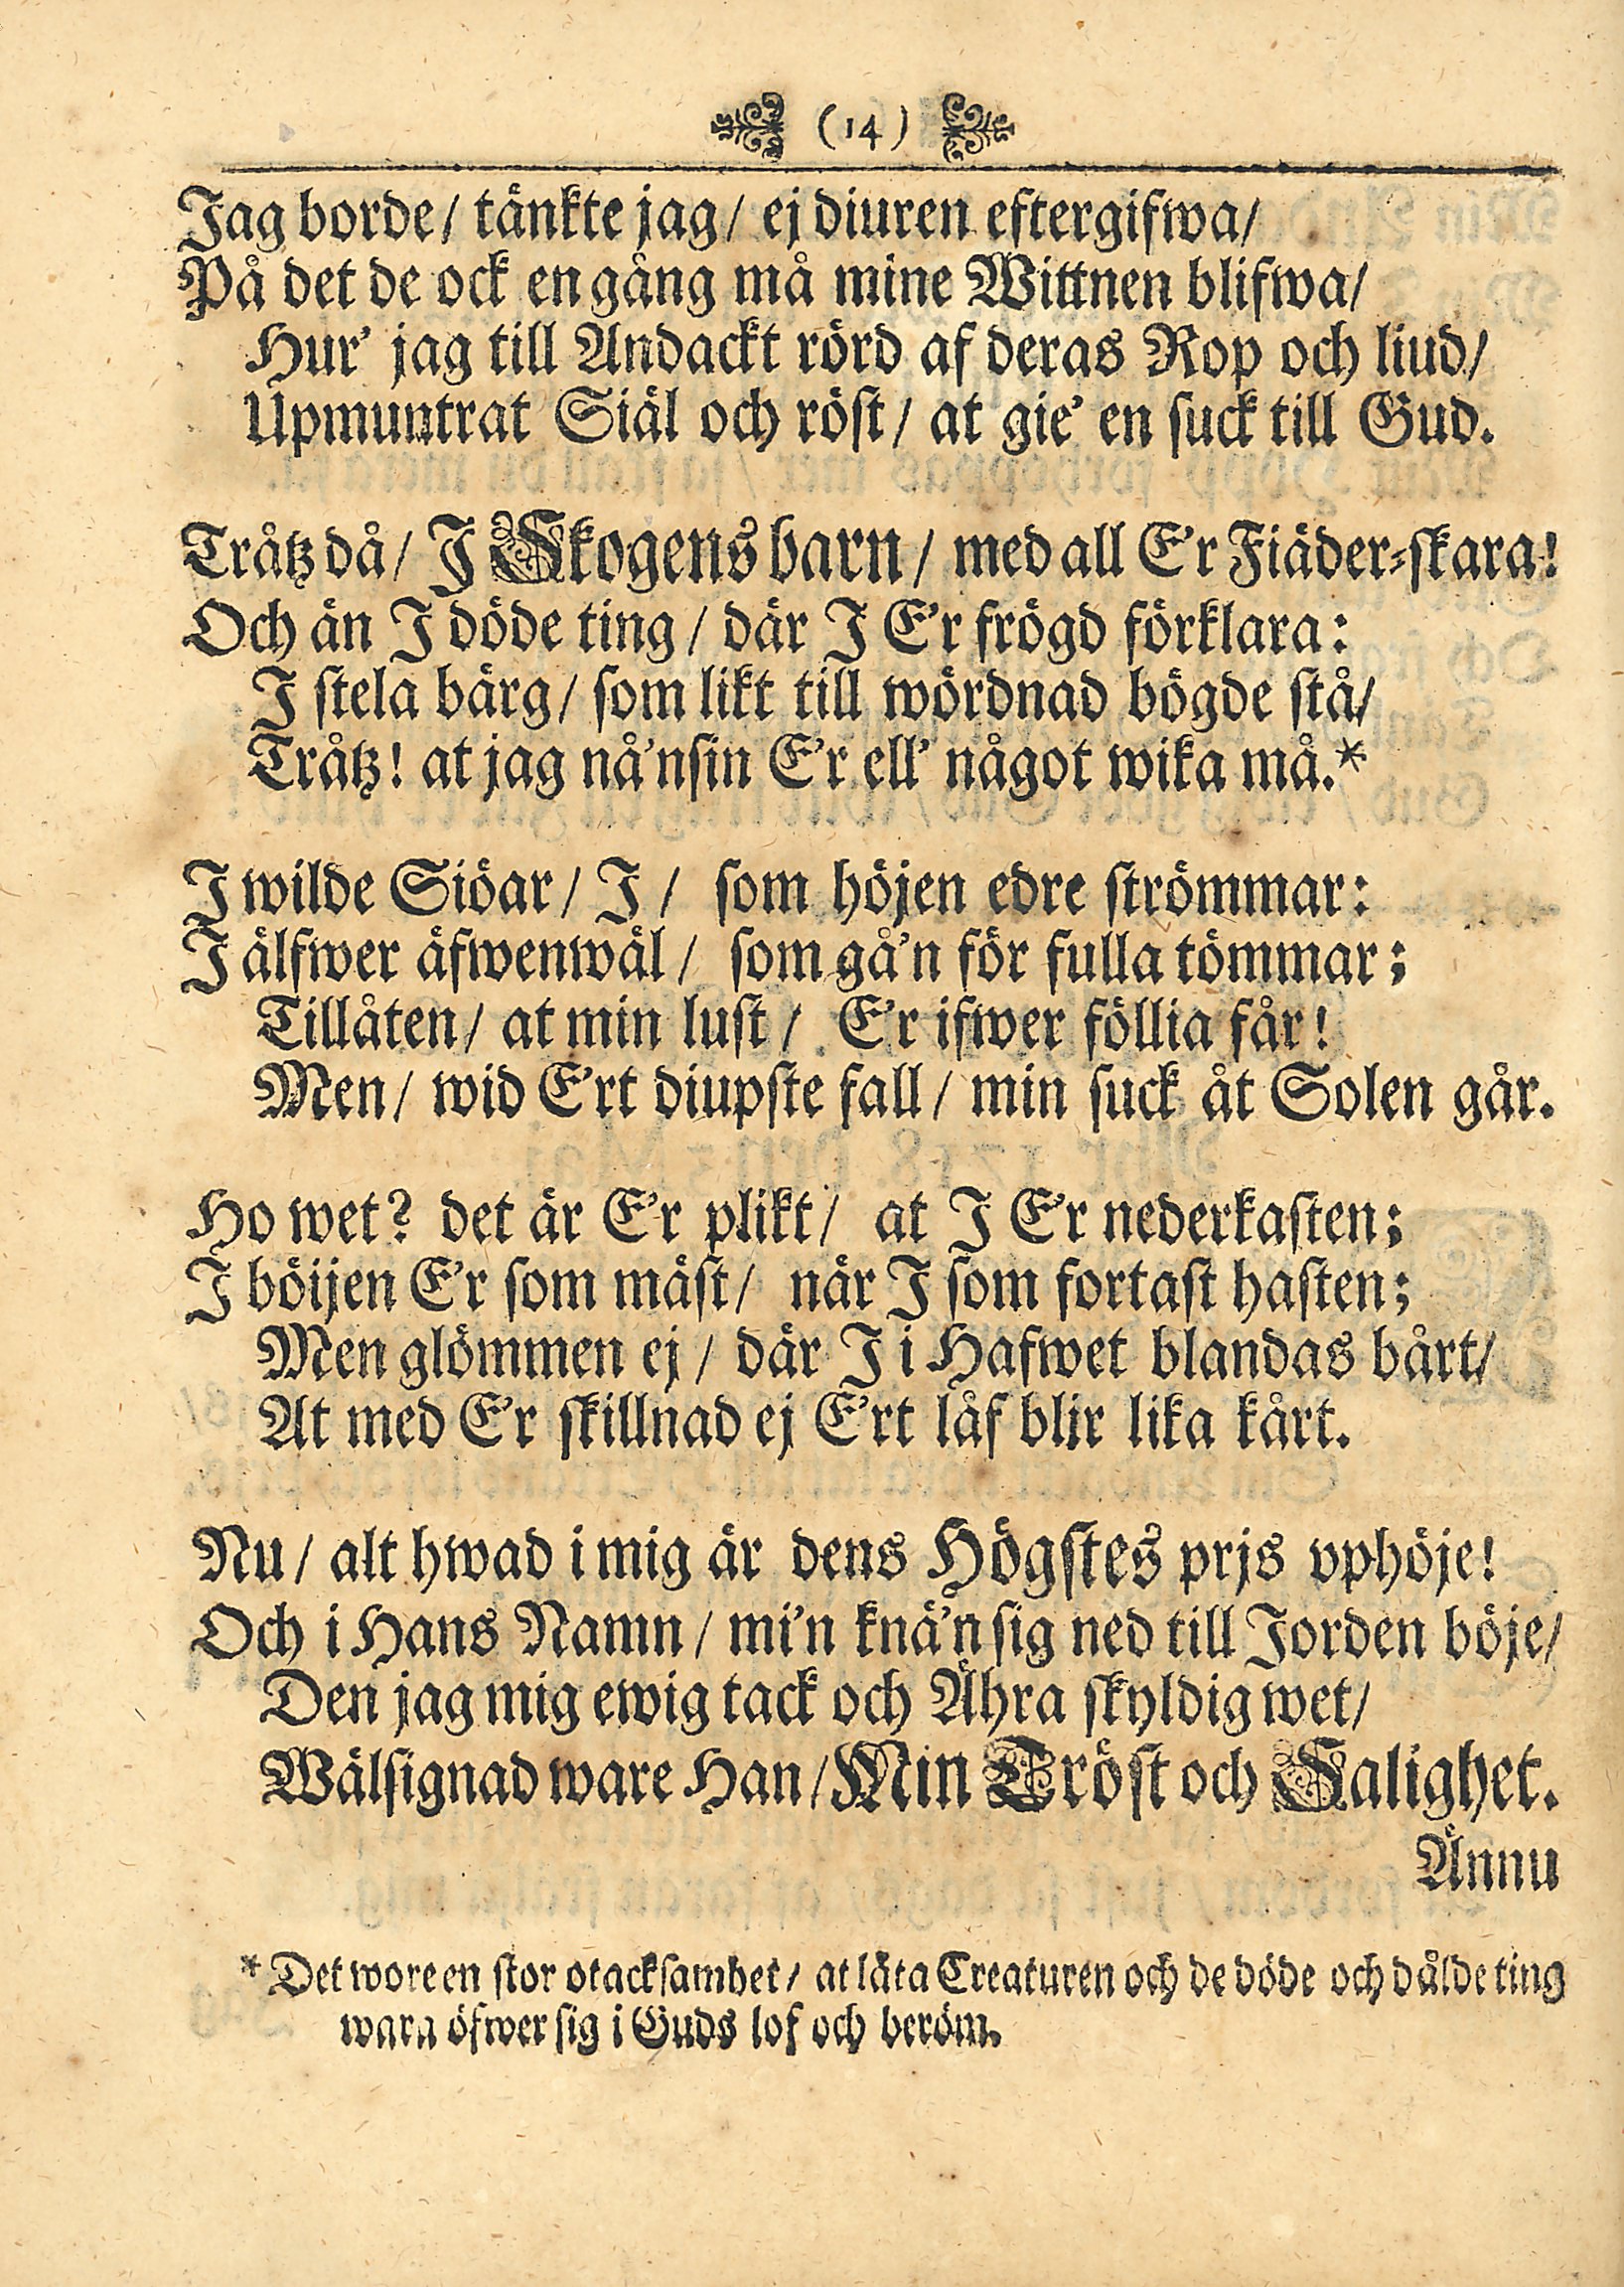 (14)
Jag borde/ tänkte jag/ ej diuren eftergifwa/
På det de ock en gång må mine Wittnen blifwa/
Hur' jag till Andackt rörd af deras Rop och liud/
Upmuntrat Siäl och röst/ at gie' en suck till Gud.
Tråtz då/ J Skogens barn/ med all E'r Fiäder-skara!
Och än J döde ting/ där J E'r frögd förklara:
J stela bärg/ som likt till wördnad bögde stå/
Tråtz! at jag nå'nsin E'r ell' något wika må.*
J wilde Siöar/ J/ som höjen edre strömmar:
J älfwer äfwenwäl/ som gå'n för fulla tömmar;
Tillåten/ at min lust/ E'r ifwer föllia får!
Men/ wid E'rt diupste fall/ min suck åt Solen går.
Ho wet? det är E'r plikt/ at J E'r nederkasten;
J böijen E'r som mäst/ när J som fortast hasten;
Men glömmen ej/ där J i Hafwet blandas bårt/
At med E'r skillnad ej E'rt låf blir lika kårt.
Nu/ alt hwad i mig är dens Högstes prjs vphöje!
Och i Hans Namn/ mi'n knä'n sig ned till Jorden böje/
Den jag mig ewig tack och Ähra skyldig wet/
Wälsignad ware Han/ Min Tröst och Salighet.
Ännu
* Det wore en stor otacksamhet/ at låta Creaturen och de döde och dålde ting
wara öfwer sig i Guds lof och beröm.